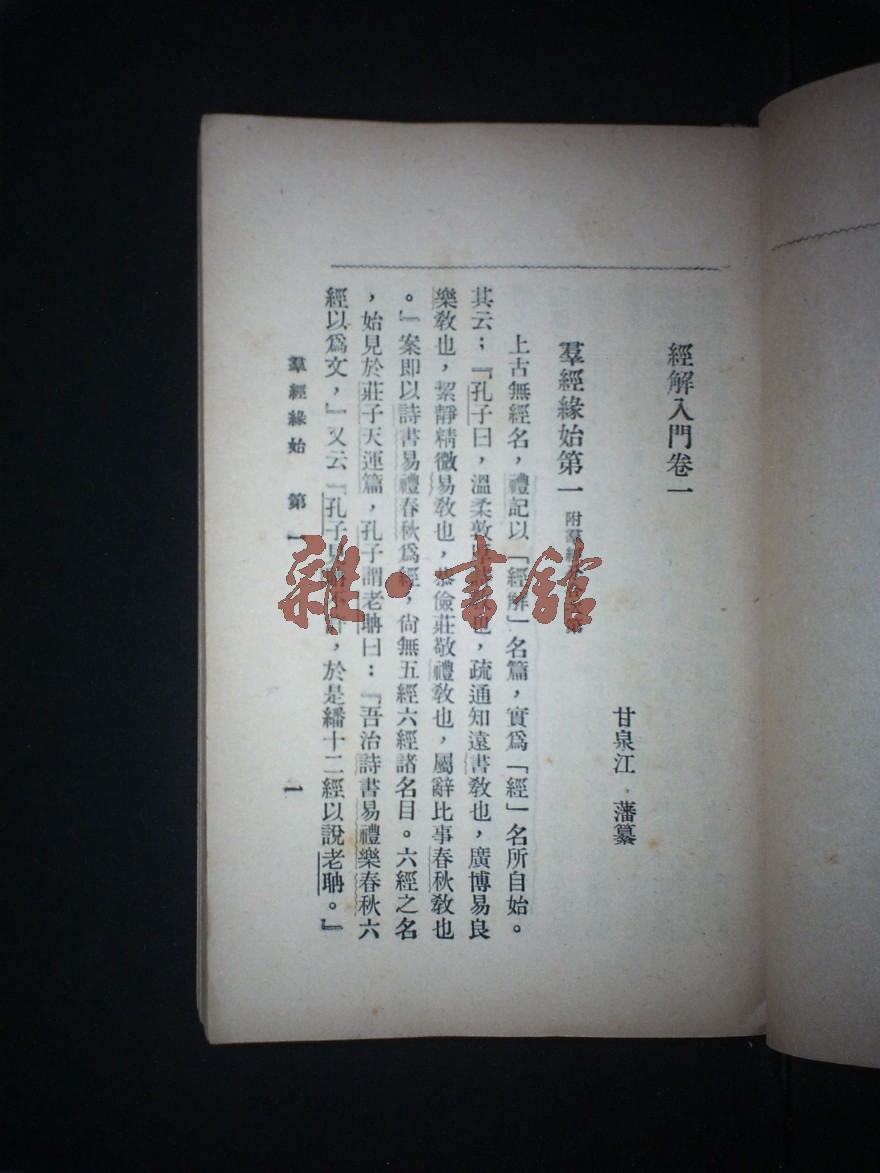 經解入門卷一
甘泉江 藩纂
羣經緣始第一 附羣經
上古無經名，禮記以「經解」名篇，實爲「經」名所自始。
其云：『孔子曰，溫柔敦厚詩教也，疏通知遠書教也，廣博易良
樂教也，絜靜精微易教也，恭儉莊敬禮教也，屬辭比事春秋教也
。』案即以詩書易禮春秋爲經，尙無五經六經諸名目。六經之名
，始見於莊子天運篇，孔子謂老聃曰：『吾治詩書易禮樂春秋六
經以爲文，』又云『孔子見，於是繙十二經以說老聃。』
羣經緣始 第一
一
雜·書館